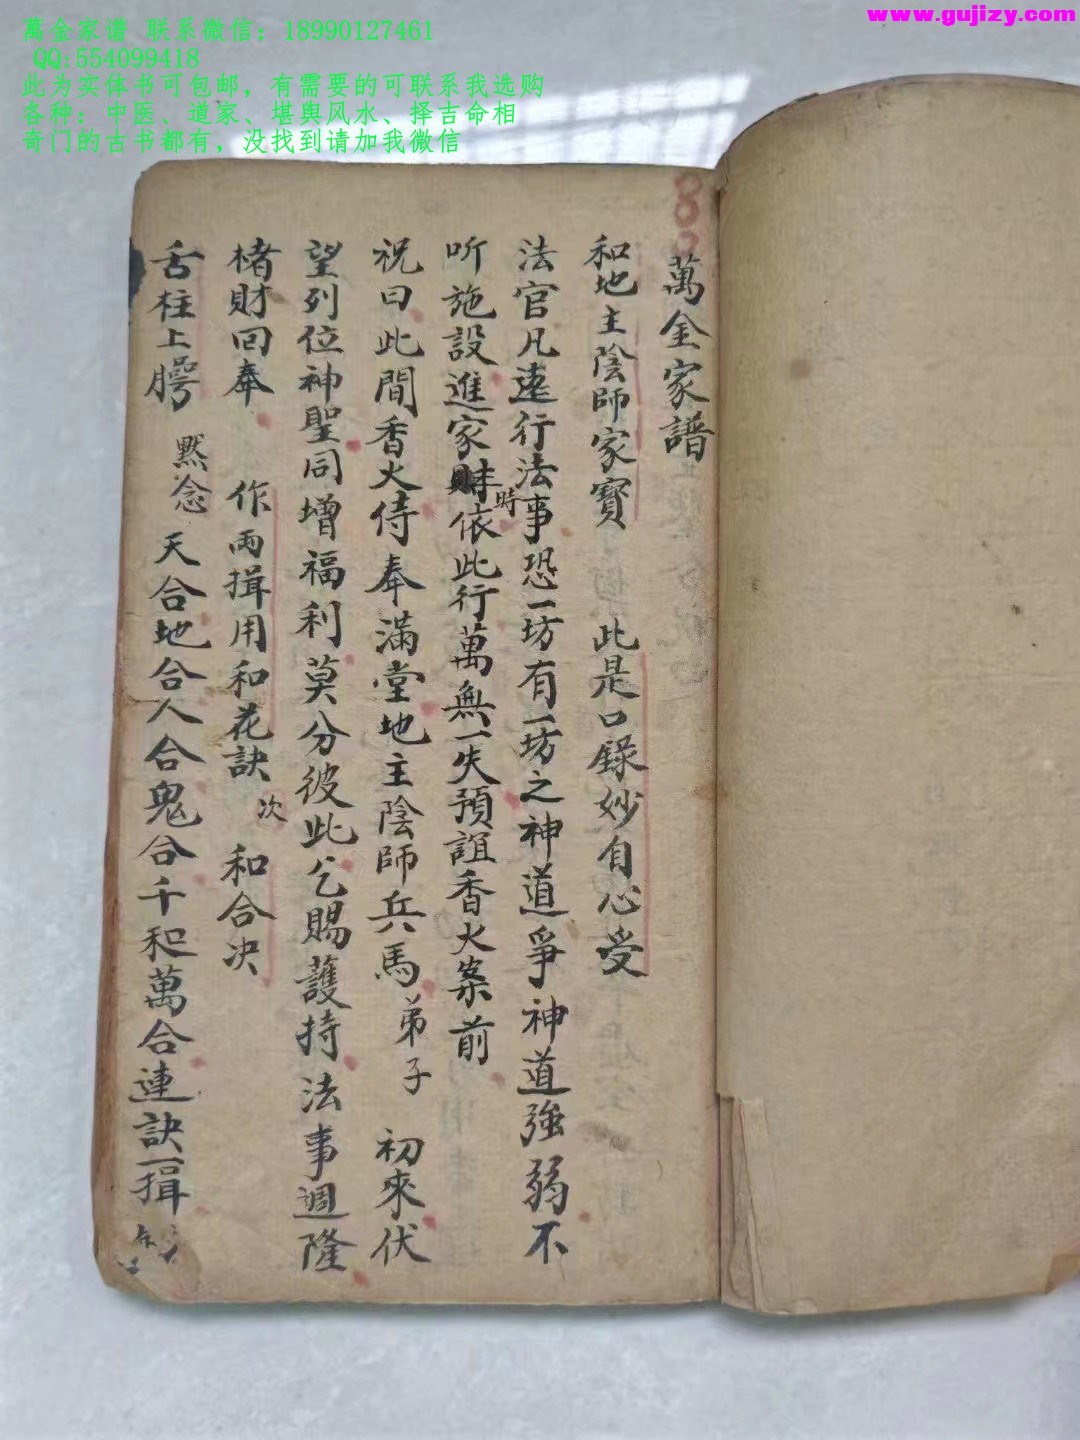 萬金家谱 联系微信：18990127461
QQ:554099418
此为实体书可包邮，有需要的可联系我选购
各种：中医、道家、堪舆风水、择吉命相
奇门的古书都有，没找到请加我微信
www.gujizy.com
萬金家譜
和地主陰師家寳 此是口錄妙自心受
法官凡遠行法事恐一坊有一坊之神道爭神道強弱不
听施設進家時依此行萬無一失預誼香火案前
祝曰此間香火侍奉滿堂地主陰師兵馬弟子 初來伏
望列位神聖同增福利莫分彼此乞賜護持法事週隆
楮財回奉 作兩揖用和花訣 次 和合决
舌柱上腭 黙念 天合地合人合鬼合千和萬合連訣一揖